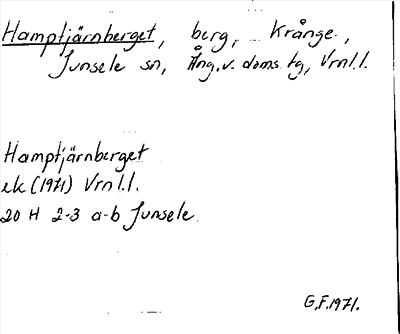 Hamptjärnberget, berg, Krånge,
Junsele sn, Ång.v. doms. tg, Vrnl.l.
Hamptjärnberget
ek (1971) Vrnl.l.
20 H 2-3 a-b Junsele
G.F. 1971.